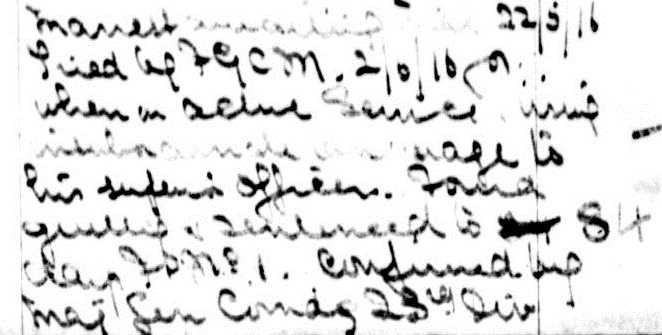 in arrest awaiting trial 22/5/16
Tried by F G C M. 2/6/16 for
when on active Service using
insubordinate language to
his superior officer. Found
guilty & sentenced to 84
days F.P. No 1. Confirmed by
Maj Gen Comdg 23rd Div